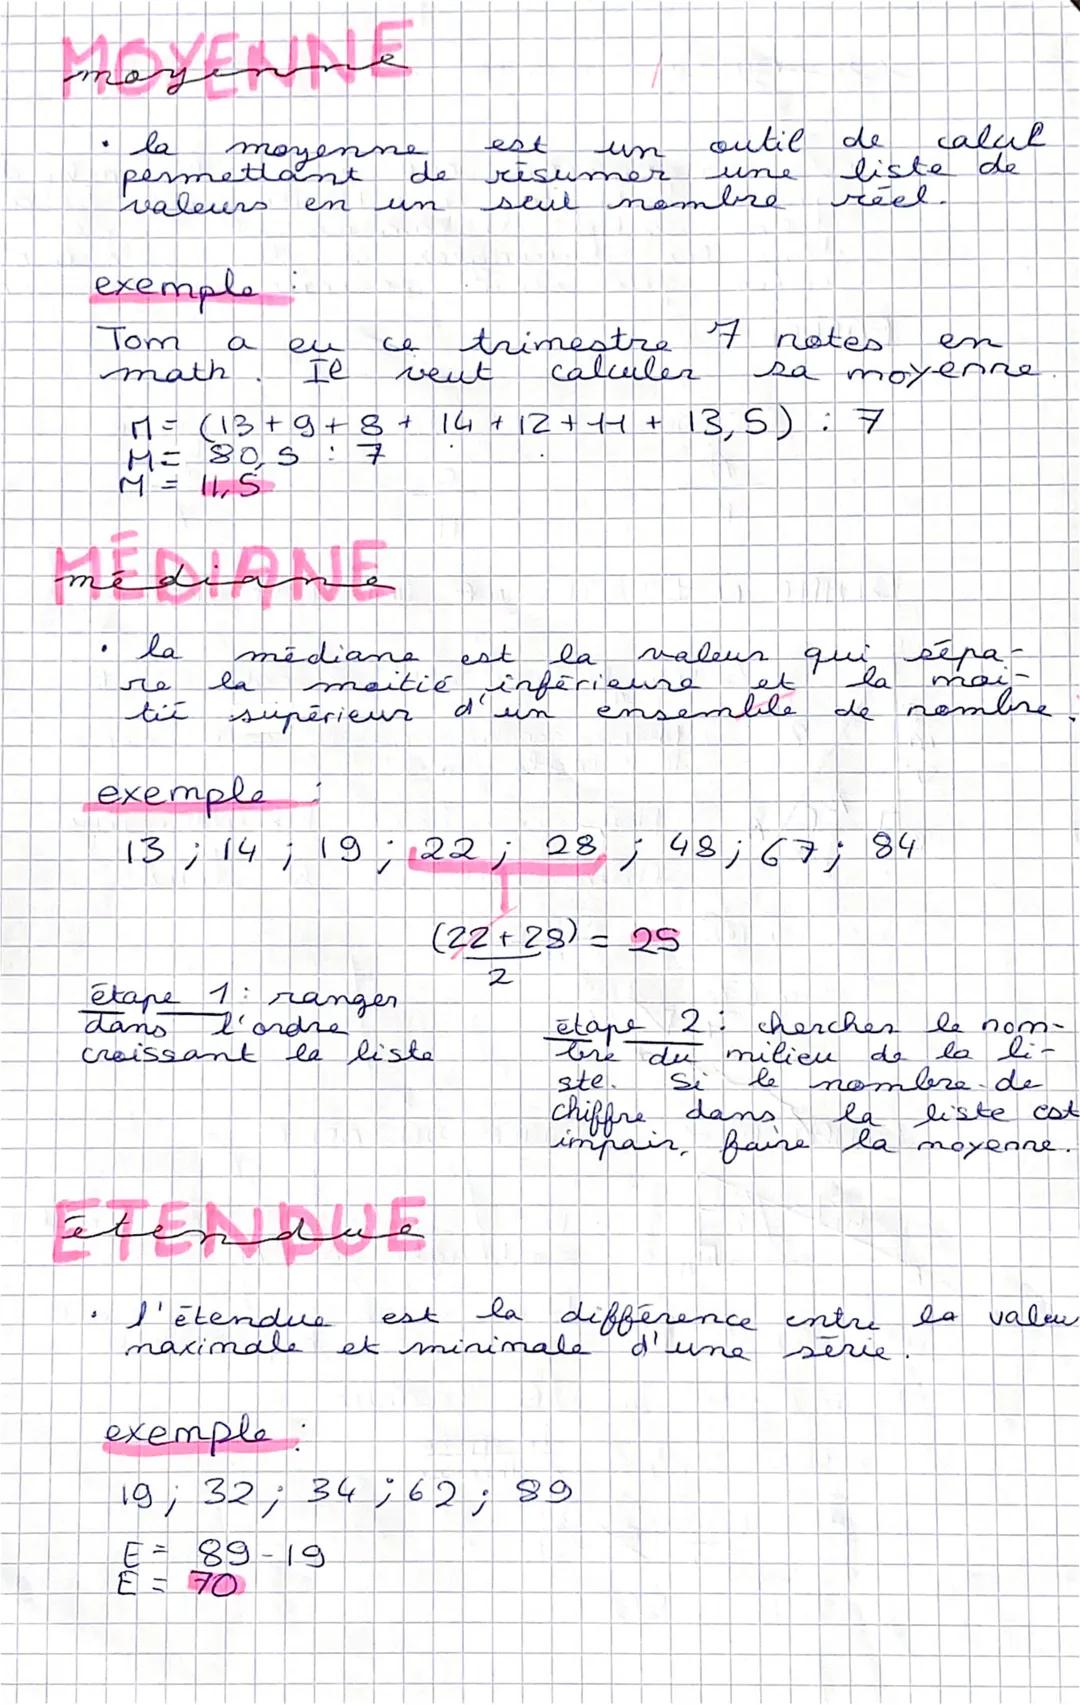 MOYENNE
moyenne
• la moyenne est un outil de calcul
permettant de résumer une liste de
valeurs en un seul nombre réel.
exemple :
Tom a eu ce trimestre 7 notes en
math. Il veut calculer sa moyenne.
M = (13 + 9 + 8 + 14 + 12 + 11 + 13,5) : 7
M = 80,5 : 7
M = 11,5
MÉDIANE
médiane
• la médiane est la valeur qui sépa-
re la moitié inférieure et la moi-
tié supérieur d'un ensemble de nombre.
exemple :
13 ; 14 ; 19 ; 22 ; 28 ; 48 ; 67 ; 84
(22 + 28) = 25
2
étape 1 : ranger
dans l'ordre
croissant la liste
étape 2 : chercher le nom-
bre du milieu de la li-
ste. Si le nombre de
chiffre dans la liste est
impair, faire la moyenne.
ETENDUE
étendue
• l'étendue est la différence entre la valeu
maximale et minimale d'une série.
exemple :
19 ; 32 ; 34 ; 62 ; 89
E = 89 - 19
E = 70